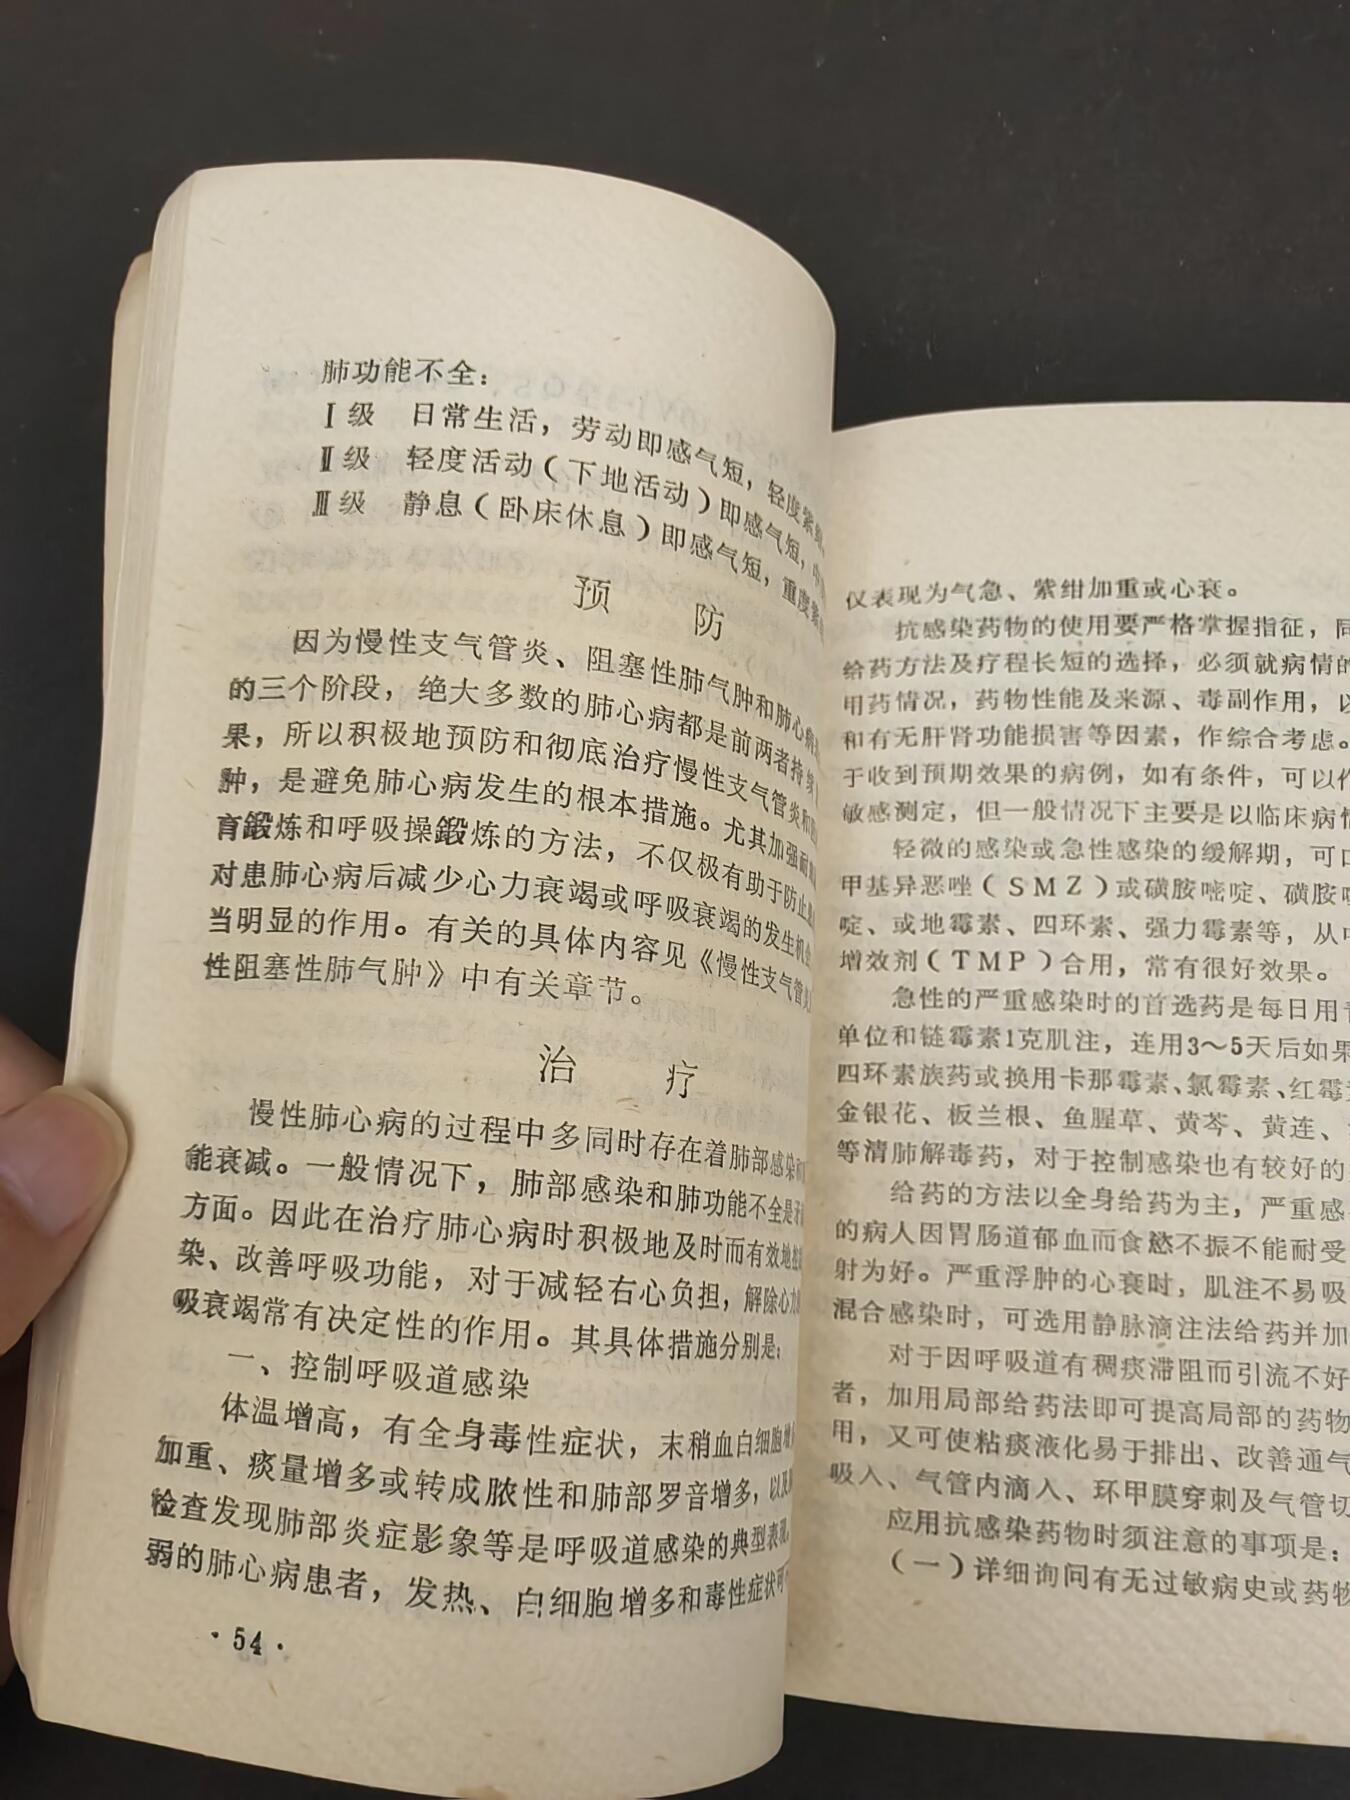 肺功能不全：
Ⅰ级 日常生活，劳动即感气短，轻度紫
Ⅱ级 轻度活动（下地活动）即感气短，中
Ⅲ级 静息（卧床休息）即感气短，重度紫
预 防
因为慢性支气管炎、阻塞性肺气肿和肺心病
的三个阶段，绝大多数的肺心病都是前两者持续
果，所以积极地预防和彻底治疗慢性支气管炎和
肿，是避免肺心病发生的根本措施。尤其加强耐
育鍛炼和呼吸操鍛炼的方法，不仅极有助于防止
对患肺心病后减少心力衰竭或呼吸衰竭的发生机会
当明显的作用。有关的具体内容见《慢性支气管炎
性阻塞性肺气肿》中有关章节。
治 疗
慢性肺心病的过程中多同时存在着肺部感染和
能衰减。一般情况下，肺部感染和肺功能不全是
方面。因此在治疗肺心病时积极地及时而有效地控
染、改善呼吸功能，对于减轻右心负担，解除心力
吸衰竭常有决定性的作用。其具体措施分别是：
一、控制呼吸道感染
体温增高，有全身毒性症状，末稍血白细胞增
加重、痰量增多或转成脓性和肺部罗音增多，以及
检查发现肺部炎症影象等是呼吸道感染的典型表现。
弱的肺心病患者，发热、白细胞增多和毒性症状可
·54·
仅表现为气急、紫绀加重或心衰。
抗感染药物的使用要严格掌握指征，同
给药方法及疗程长短的选择，必须就病情的
用药情况，药物性能及来源、毒副作用，以
和有无肝肾功能损害等因素，作综合考虑。
于收到预期效果的病例，如有条件，可以作
敏感测定，但一般情况下主要是以临床病情
轻微的感染或急性感染的缓解期，可口
甲基异恶唑（SMZ）或磺胺嘧啶、磺胺嘧
啶、或地霉素、四环素、强力霉素等，从中
增效剂（TMP）合用，常有很好效果。
急性的严重感染时的首选药是每日用青
单位和链霉素1克肌注，连用3～5天后如果
四环素族药或换用卡那霉素、氯霉素、红霉素
金银花、板兰根、鱼腥草、黄芩、黄连、
等清肺解毒药，对于控制感染也有较好的
给药的方法以全身给药为主，严重感
的病人因胃肠道郁血而食慾不振不能耐受
射为好。严重浮肿的心衰时，肌注不易吸
混合感染时，可选用静脉滴注法给药并加
对于因呼吸道有稠痰滞阻而引流不好
者，加用局部给药法即可提高局部的药物
用，又可使粘痰液化易于排出、改善通气
吸入、气管内滴入、环甲膜穿刺及气管切
应用抗感染药物时须注意的事项是：
（一）详细询问有无过敏病史或药物